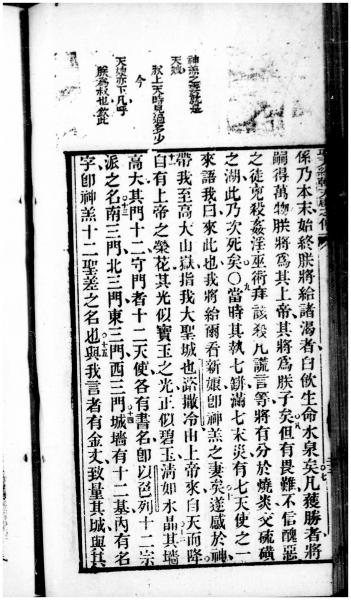 神羔之妻就是
天嫂
朕上天時見過多少
今
天嫂亦下凡呼
朕為叔也欽此
係乃本末始終朕將給諸渴者白飲生命水泉矣凡獲勝者將
嗣得萬物朕將為其上帝其將為朕子矣但有畏難不信醜惡
之徒兇殺姦淫巫術拜該殺凡謊言等將有分於燒炎交硫磺
之湖此乃次死矣○當時其執七鉼滿七末災有七天使之一
來語我曰來此也我將給爾看新娘即神羔之妻矣遂感於神
帶我至高大山嶽指我大聖城也撒冷由上帝來自天而降
白有上帝之榮花其光似寶玉之光正似碧玉清如水晶其墻
高大其門十二守門者十二天使各有書名即以色列十二宗
派之名南三門北三門東三門西三門城墻有十二基內有名
字即神羔十二聖差之名也與我言者有金丈致量其城與其